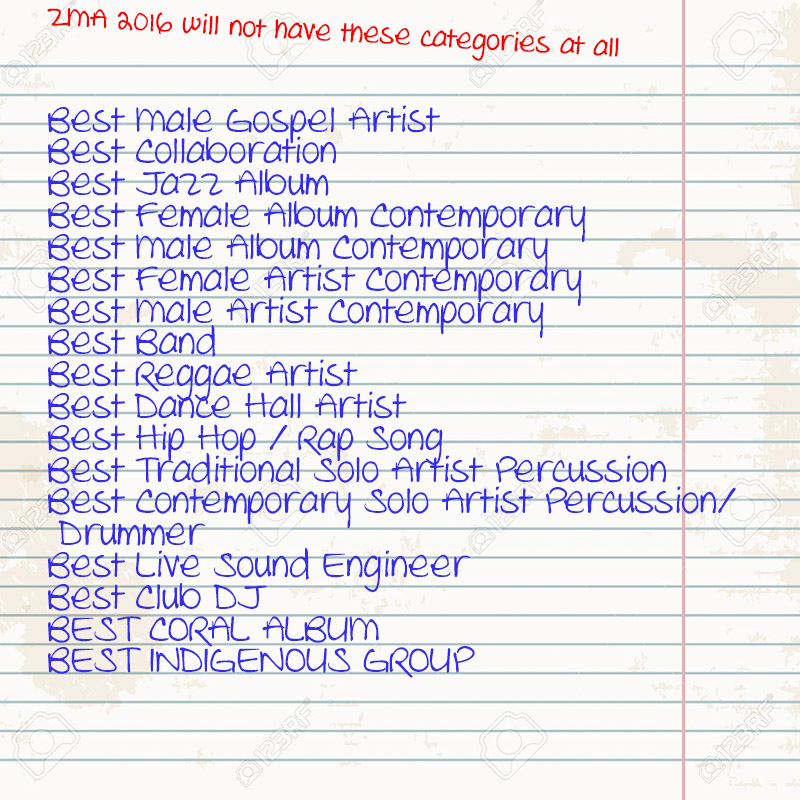 ZMA 2016 will not have these categories at all
Best Male Gospel Artist
Best Collaboration
Best Jazz Album
Best Female Album Contemporary
Best Male Album Contemporary
Best Female Artist Contemporary
Best Male Artist Contemporary
Best Band
Best Reggae Artist
Best Dance Hall Artist
Best Hip Hop / Rap Song
Best Traditional Solo Artist Percussion
Best Contemporary Solo Artist Percussion/
Drummer
Best Live Sound Engineer
Best Club DJ
BEST CORAL ALBUM
BEST INDIGENOUS GROUP